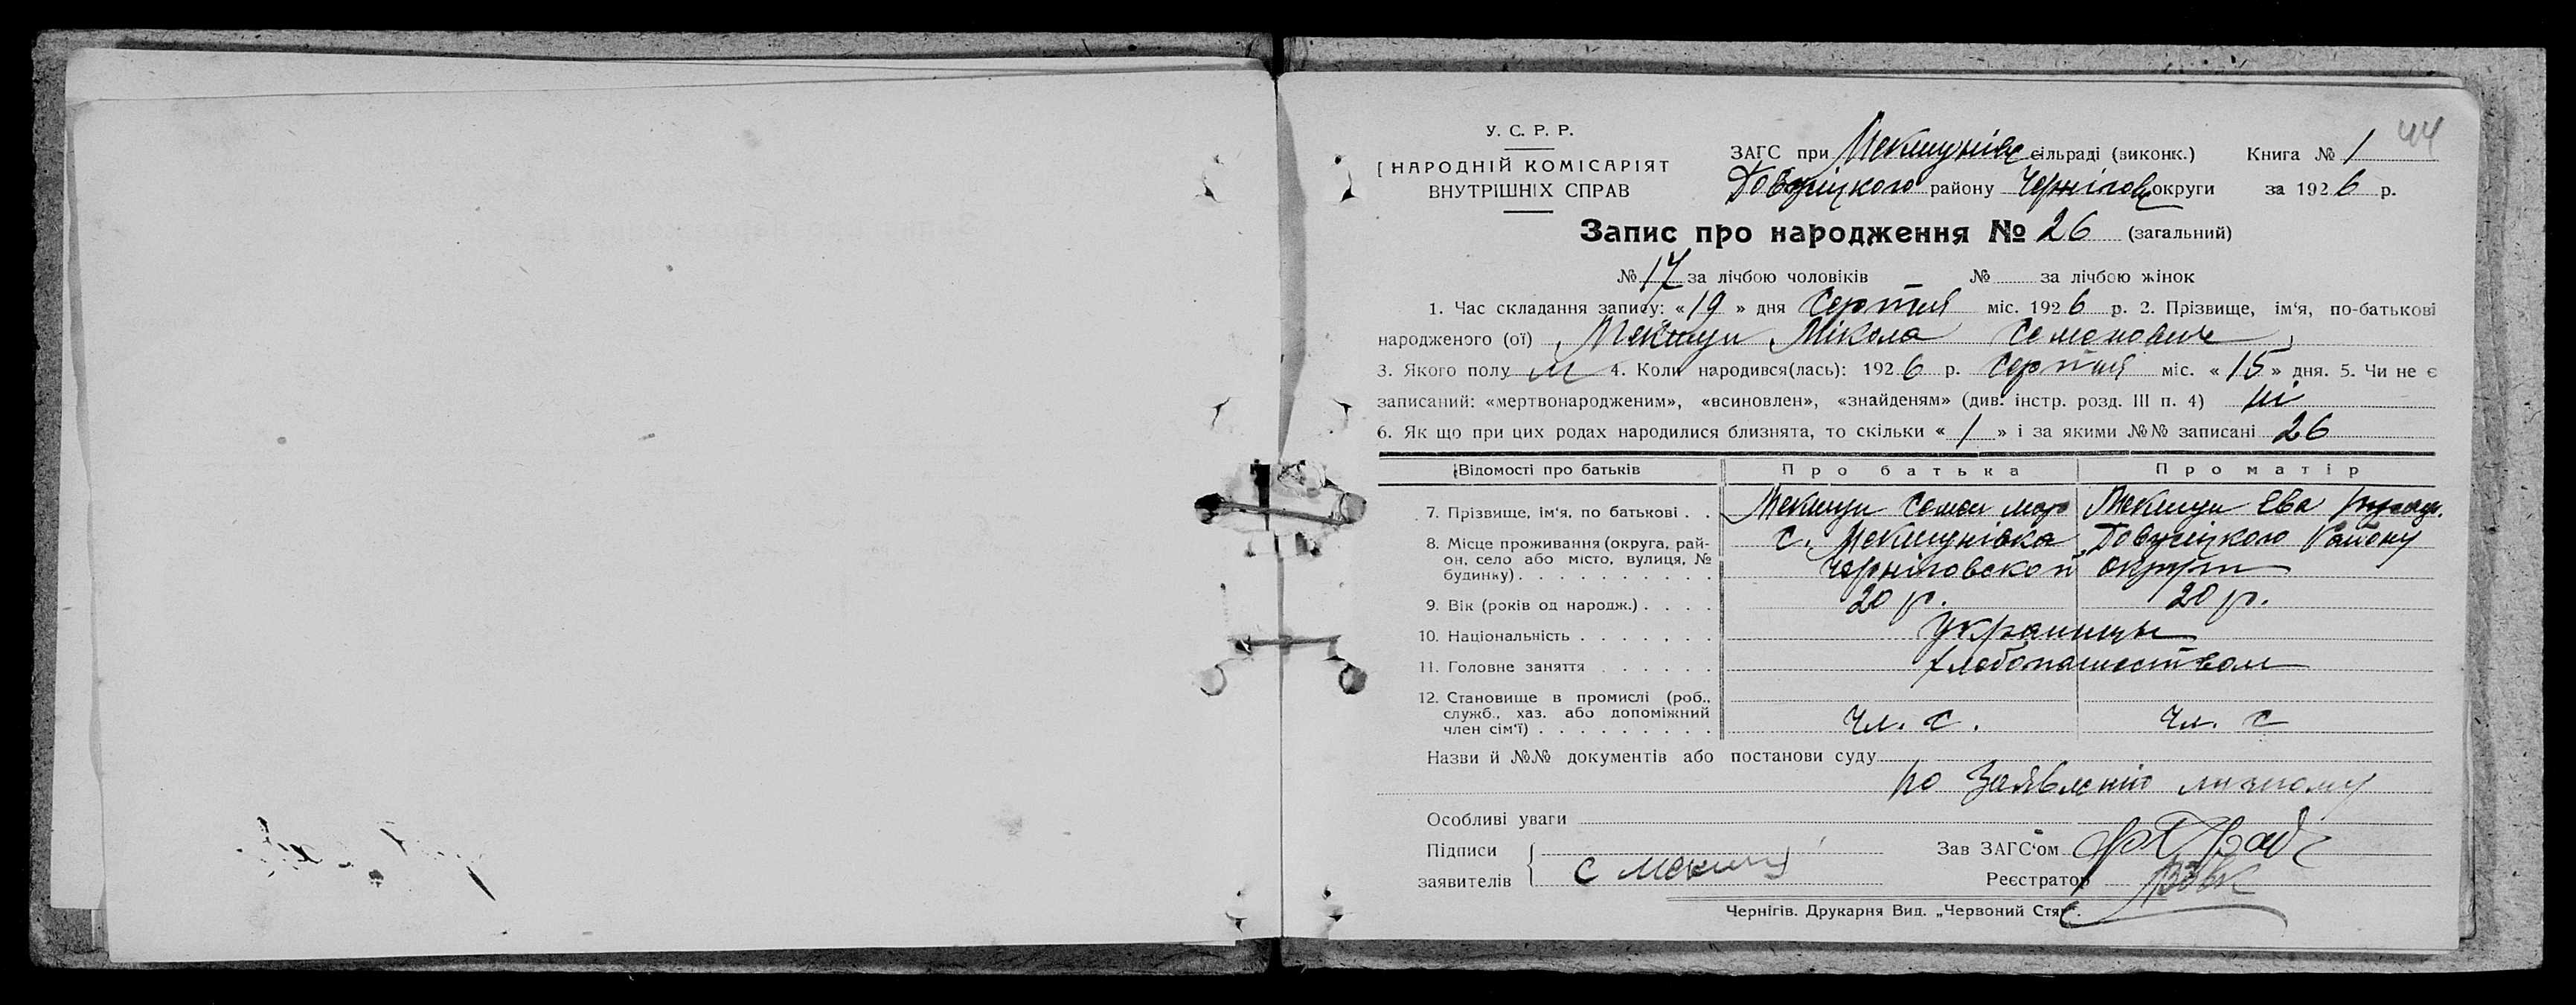 44
У. С. Р. Р.
НАРОДНІЙ КОМІСАРІЯТ
ВНУТРІШНІХ СПРАВ
ЗАГС при Мекшунівс сільраді (виконк.) Книга № 1
району Чернігов округи за 1926 р.
Запис про народження № 26 (загальний)
№ 17 за лічбою чоловіків № за лічбою жінок
1. Час складання запису: «19» дня Серпня міс. 1926 р. 2. Прізвище, ім'я, по-батькові
народженого (ої) Мекшун Мікола Семенович
3. Якого полу м 4. Коли народився(лась): 1926 р. Серпня міс. «15» дня. 5. Чи не є
записаний: «мертвонародженим», «всиновлен», «знайденям» (див. інстр. розд. III п. 4) ні
6. Як що при цих родах народилися близнята, то скільки «1» і за якими №№ записані 26
Відомості про батьків Про батька Про матір
7. Прізвище, ім'я, по батькові . . Мекшун Семен мар Мекшун Ева
8. Місце проживання (округа, рай-
он, село або місто, вулиця, №
будинку) . . . . . . . . . .
с. Мекшунівка Району
Черніговской округи
9. Вік (років од народж.) . . . . 20 р. 20 р.
10. Національність . . . . . . Украинцы
11. Головне заняття . . . . . . хлебопашеством
12. Становище в промислі (роб.,
служб., хаз. або допоміжний
член сім'ї) . . . . . . . . . чл. с. чл. с
Назви й №№ документів або постанови суду
по Заявлению личному
Особливі уваги
Підписи
заявителів С Мекшун
Зав ЗАГС'ом
Реєстратор Вовк
Чернігів. Друкарня Вид. „Червоний Стяг".